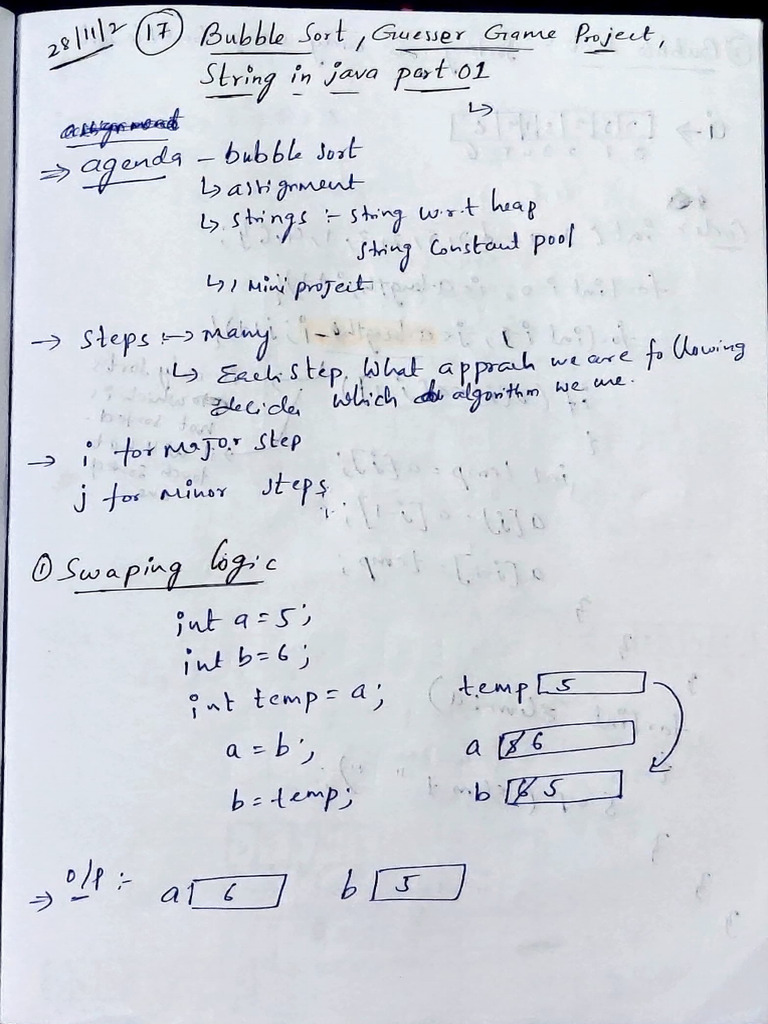 28/11/2 (17) Bubble Sort, Guesser Game Project,
String in java part 01
↳
⇒ agenda - bubble sort
↳ assignment
↳ Strings :- String w.r.t heap
String Constant pool
↳ 1 Mini project
→ Steps :→ Many
↳ Each Step, What apprach we are following
decides which algorithm we use.
→ i for Major Step
j for Minor Steps
① Swaping logic
int a = 5;
int b = 6;
int temp = a; temp 5
a = b; a 5 6
b = temp; b 6 5
⇒ O/P :- a 6 b 5